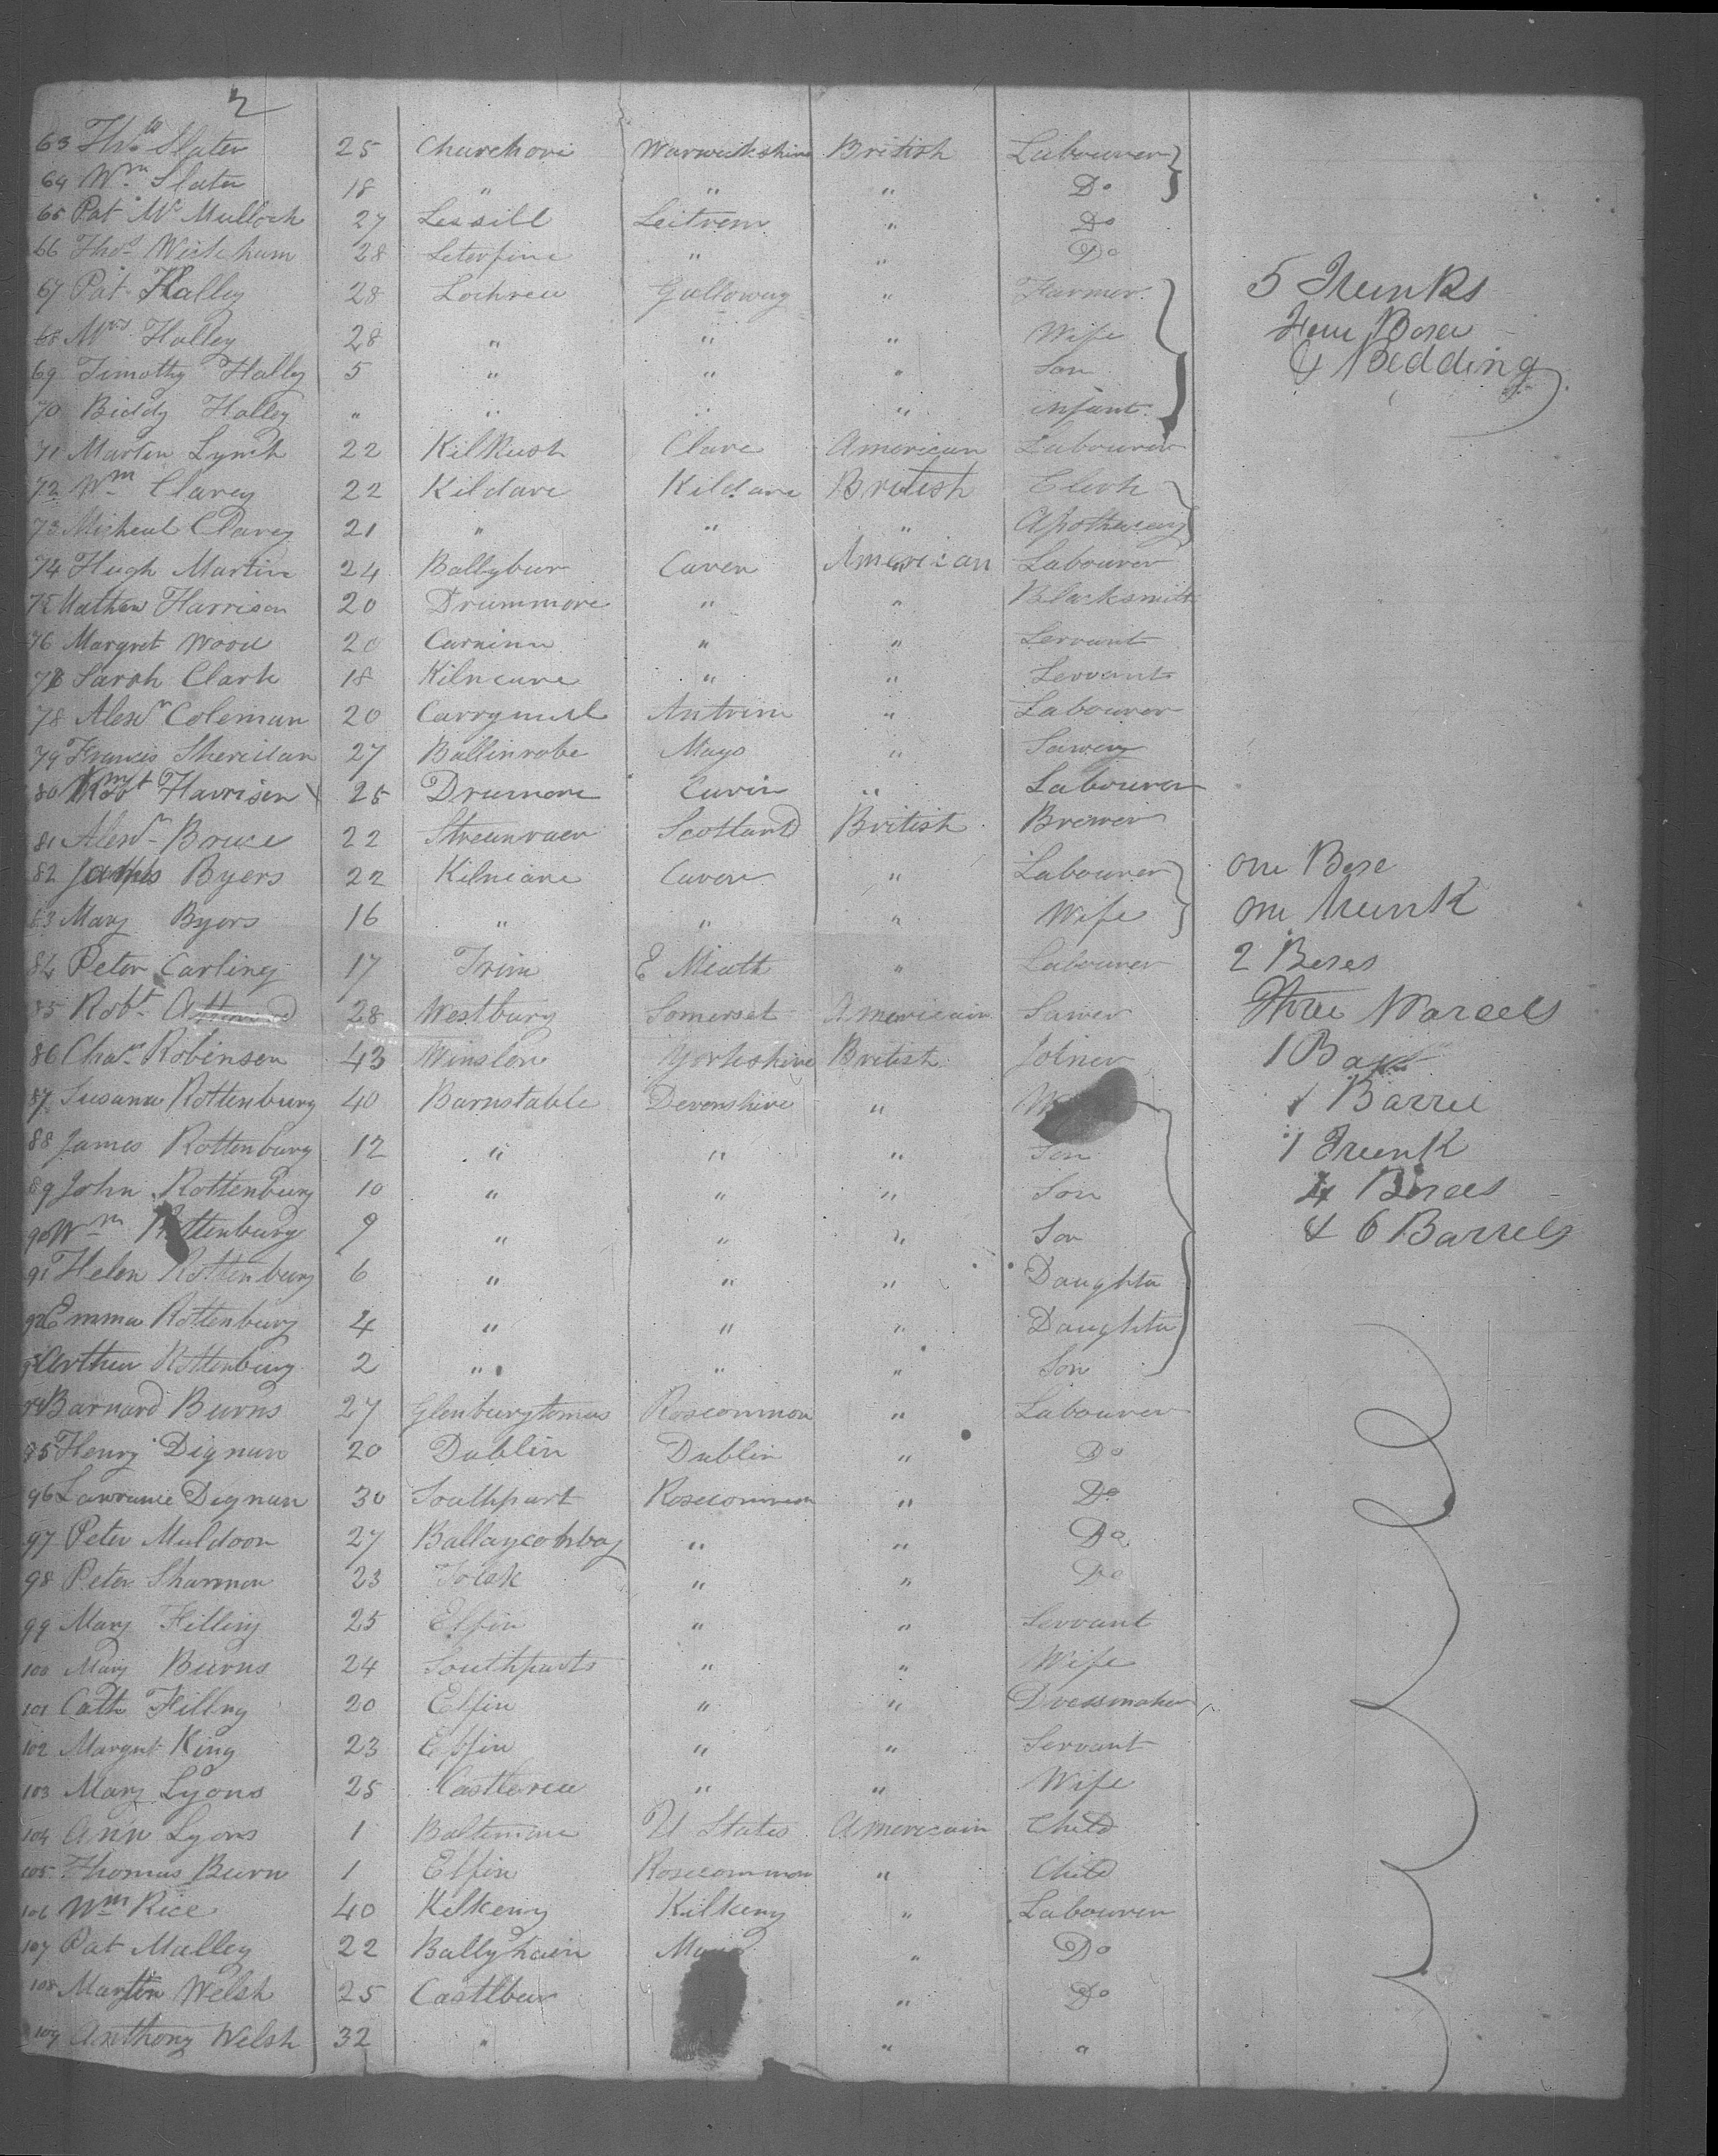 2
63 Thos Slater 25 Churchovi Warwickshire British Labourer
64 Wm Slater 18 " " " Do
65 Pat Mc Mulloch 27 Lessill Leitrem " Do
66 Thos Wickham 28 Leterfine " " Do
67 Pat Halley 28 Lochrea Galloway " Farmer 5 Trunks
68 Mrs Halley 28 " " " Wife Four Boxes
69 Timothy Halley 5 " " " Son & Bedding
70 Biddy Halley " " " " infant
71 Martin Lynch 22 KilRush Clare American Labourer
72 Wm Clarey 22 Kildare Kildare British Clerk
73 Micheal Clarey 21 " " " Apothecary
74 Hugh Martin 24 Ballybur Caven American Labourer
75 Mathew Harrison 20 Drummore " " Blacksmith
76 Margret Wood 20 Carninn " " Servant
77 Sarah Clark 18 Kilncare " " Servant
78 Alexr Coleman 20 Carrymill Antrim " Labourer
79 Francis Sheridan 27 Ballinrobe Mayo " Sawey
80 Harrison 25 Drumore Cavin " Labourer
81 Alexr Bruce 22 Streanraer Scotland British Brewer
82 James Byers 22 Kilncare Caven " Labourer one Boxe
83 Mary Byers 16 " " " Wife one trunk
84 Peter Carling 17 Trim E Meath " Labourer 2 Boxes
85 Robt 28 Westbury Somerset Americain Sawer Three Parcels
86 Chas Robinson 43 Winslow Yorkeshire British Joiner 1 Box
87 Susana Rottenbury 40 Barnstable Devonshire " 1 Barrel
88 James Rottenbury 12 " " " Son 1 Trunk
89 John Rottenbury 10 " " " Son 4 Boxes
90 Wm Rottenbury 9 " " " Son & 6 Barrels
91 Helen Rottenbury 6 " " " Daughter
92 Emma Rottenbury 4 " " " Daughter
93 Arthur Rottenbury 2 " " " Son
94 Barnard Burns 27 Glenburytomus Roscommon " Labourer
95 Henry Dignan 20 Dublin Dublin " Do
96 Lawrance Dignan 30 Southpart Roscommon " Do
97 Peter Muldoon 27 Ballaycohboy " " Do
98 Peter Shannon 23 Tolak " " Do
99 Mary Filling 25 Elfin " " Servant
100 Mary Burns 24 Southparts " " Wife
101 Cath Filling 20 Elfin " " Dressmaker
102 Margret King 23 Elfin " " Servant
103 Mary Lyons 25 Castlerea " " Wife
104 Ann Lyons 1 Baltimore U States Americain Child
105 Thomas Burn 1 Elfin Roscommon " Child
106 Wm Rice 40 Kilkeny Kilkeny " Labourer
107 Pat Malley 22 Ballyhain Mayo " Do
108 Martin Welsh 25 Castlbur " Do
109 Anthony Welsh 32 " " "